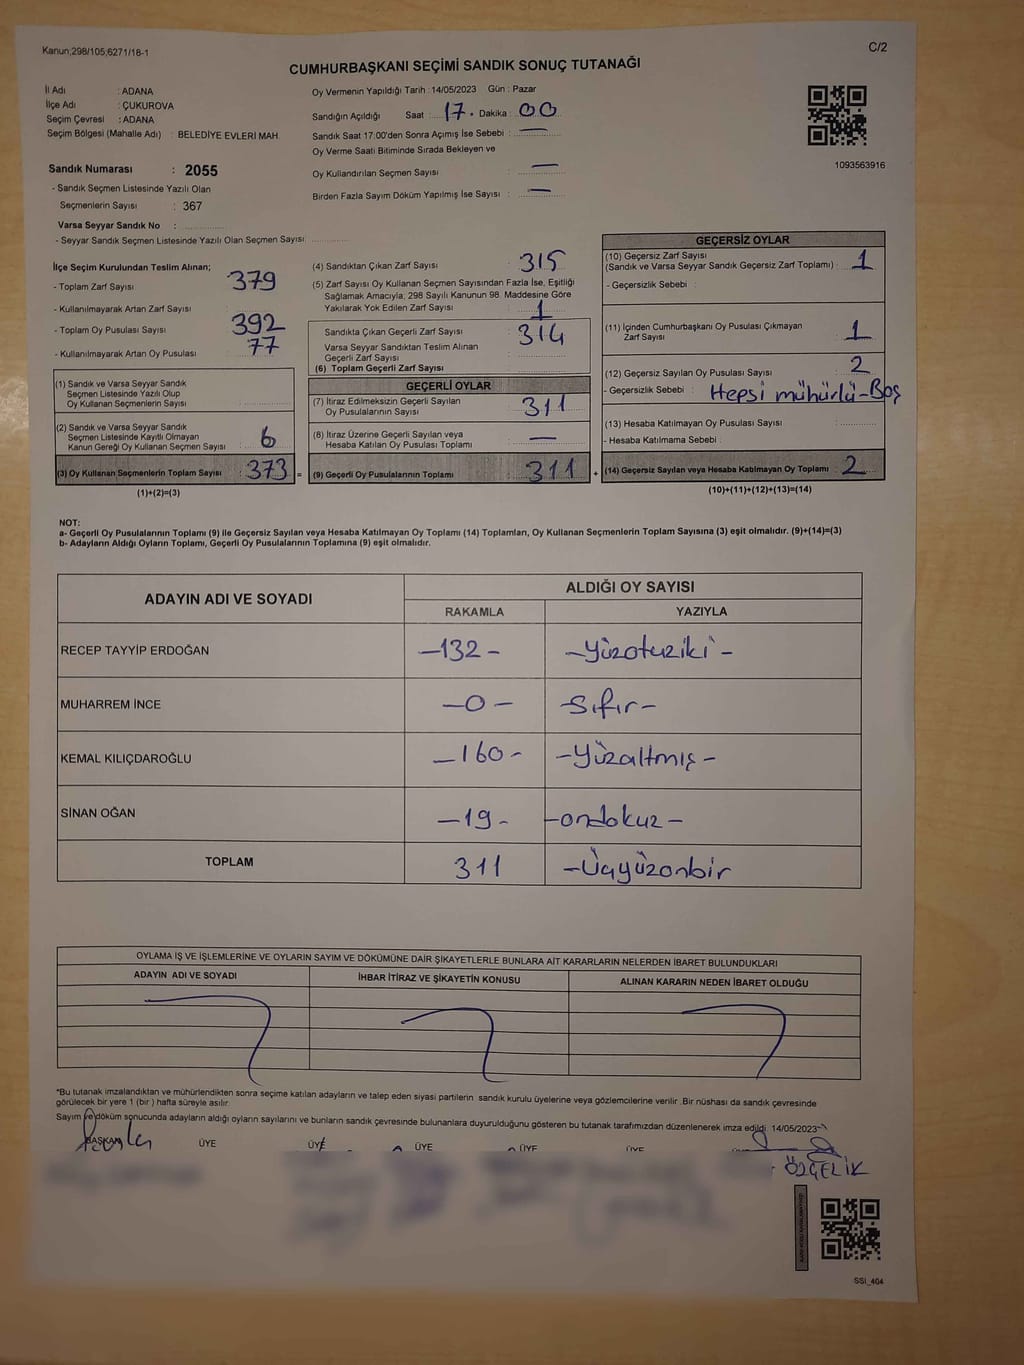 Kanun;298/105;6271/18-1
C/2
CUMHURBAŞKANI SEÇİMİ SANDIK SONUÇ TUTANAĞI
İl Adı : ADANA
İlçe Adı : ÇUKUROVA
Seçim Çevresi : ADANA
Seçim Bölgesi (Mahalle Adı) : BELEDİYE EVLERİ MAH.
Oy Vermenin Yapıldığı Tarih : 14/05/2023 Gün : Pazar
Sandığın Açıldığı Saat : 17. Dakika : 00
Sandık Saat 17:00'den Sonra Açımış İse Sebebi : —
Oy Verme Saati Bitiminde Sırada Bekleyen ve
Oy Kullandırılan Seçmen Sayısı : —
Birden Fazla Sayım Döküm Yapılmış İse Sayısı : —
1093563916
Sandık Numarası : 2055
- Sandık Seçmen Listesinde Yazılı Olan
Seçmenlerin Sayısı : 367
Varsa Seyyar Sandık No :
- Seyyar Sandık Seçmen Listesinde Yazılı Olan Seçmen Sayısı:
İlçe Seçim Kurulundan Teslim Alınan;
- Toplam Zarf Sayısı : 379
- Kullanılmayarak Artan Zarf Sayısı :
- Toplam Oy Pusulası Sayısı : 392
- Kullanılmayarak Artan Oy Pusulası : 77
(1) Sandık ve Varsa Seyyar Sandık
Seçmen Listesinde Yazılı Olup
Oy Kullanan Seçmenlerin Sayısı :
(2) Sandık ve Varsa Seyyar Sandık
Seçmen Listesinde Kayıtlı Olmayan
Kanun Gereği Oy Kullanan Seçmen Sayısı : 6
(3) Oy Kullanan Seçmenlerin Toplam Sayısı : 373 =
(1)+(2)=(3)
(4) Sandıktan Çıkan Zarf Sayısı : 315
(5) Zarf Sayısı Oy Kullanan Seçmen Sayısından Fazla İse, Eşitliği
Sağlamak Amacıyla; 298 Sayılı Kanunun 98. Maddesine Göre
Yakılarak Yok Edilen Zarf Sayısı : 1
Sandıkta Çıkan Geçerli Zarf Sayısı : 314
Varsa Seyyar Sandıktan Teslim Alınan
Geçerli Zarf Sayısı :
(6) Toplam Geçerli Zarf Sayısı :
GEÇERLİ OYLAR
(7) İtiraz Edilmeksizin Geçerli Sayılan
Oy Pusulalarının Sayısı : 311
(8) İtiraz Üzerine Geçerli Sayılan veya
Hesaba Katılan Oy Pusulası Toplamı : —
(9) Geçerli Oy Pusulalarının Toplamı : 311 +
GEÇERSİZ OYLAR
(10) Geçersiz Zarf Sayısı
(Sandık ve Varsa Seyyar Sandık Geçersiz Zarf Toplamı) : 1
- Geçersizlik Sebebi :
(11) İçinden Cumhurbaşkanı Oy Pusulası Çıkmayan
Zarf Sayısı : 1
(12) Geçersiz Sayılan Oy Pusulası Sayısı : 2
- Geçersizlik Sebebi : Hepsi mühürlü-Boş
(13) Hesaba Katılmayan Oy Pusulası Sayısı :
- Hesaba Katılmama Sebebi :
(14) Geçersiz Sayılan veya Hesaba Katılmayan Oy Toplamı : 2
(10)+(11)+(12)+(13)=(14)
NOT:
a- Geçerli Oy Pusulalarının Toplamı (9) ile Geçersiz Sayılan veya Hesaba Katılmayan Oy Toplamı (14) Toplamları, Oy Kullanan Seçmenlerin Toplam Sayısına (3) eşit olmalıdır. (9)+(14)=(3)
b- Adayların Aldığı Oyların Toplamı, Geçerli Oy Pusulalarının Toplamına (9) eşit olmalıdır.
ADAYIN ADI VE SOYADI
ALDIĞI OY SAYISI
RAKAMLA YAZIYLA
RECEP TAYYİP ERDOĞAN -132- -Yüzotuziki-
MUHARREM İNCE -0- -Sıfır-
KEMAL KILIÇDAROĞLU -160- -Yüzaltmış-
SİNAN OĞAN -19- -ondokuz-
TOPLAM 311 -Üçyüzonbir
OYLAMA İŞ VE İŞLEMLERİNE VE OYLARIN SAYIM VE DÖKÜMÜNE DAİR ŞİKAYETLERLE BUNLARA AİT KARARLARIN NELERDEN İBARET BULUNDUKLARI
ADAYIN ADI VE SOYADI İHBAR İTİRAZ VE ŞİKAYETİN KONUSU ALINAN KARARIN NEDEN İBARET OLDUĞU
*Bu tutanak imzalandıktan ve mühürlendikten sonra seçime katılan adayların ve talep eden siyasi partilerin sandık kurulu üyelerine veya gözlemcilerine verilir .Bir nüshası da sandık çevresinde
görülecek bir yere 1 (bir ) hafta süreyle asılır.
Sayım ve döküm sonucunda adayların aldığı oyların sayılarını ve bunların sandık çevresinde bulunanlara duyurulduğunu gösteren bu tutanak tarafımızdan düzenlenerek imza edildi. 14/05/2023
BAŞKAN ÜYE ÜYE ÜYE ÜYE ÜYE
ÖZÇELİK
SSİ_404